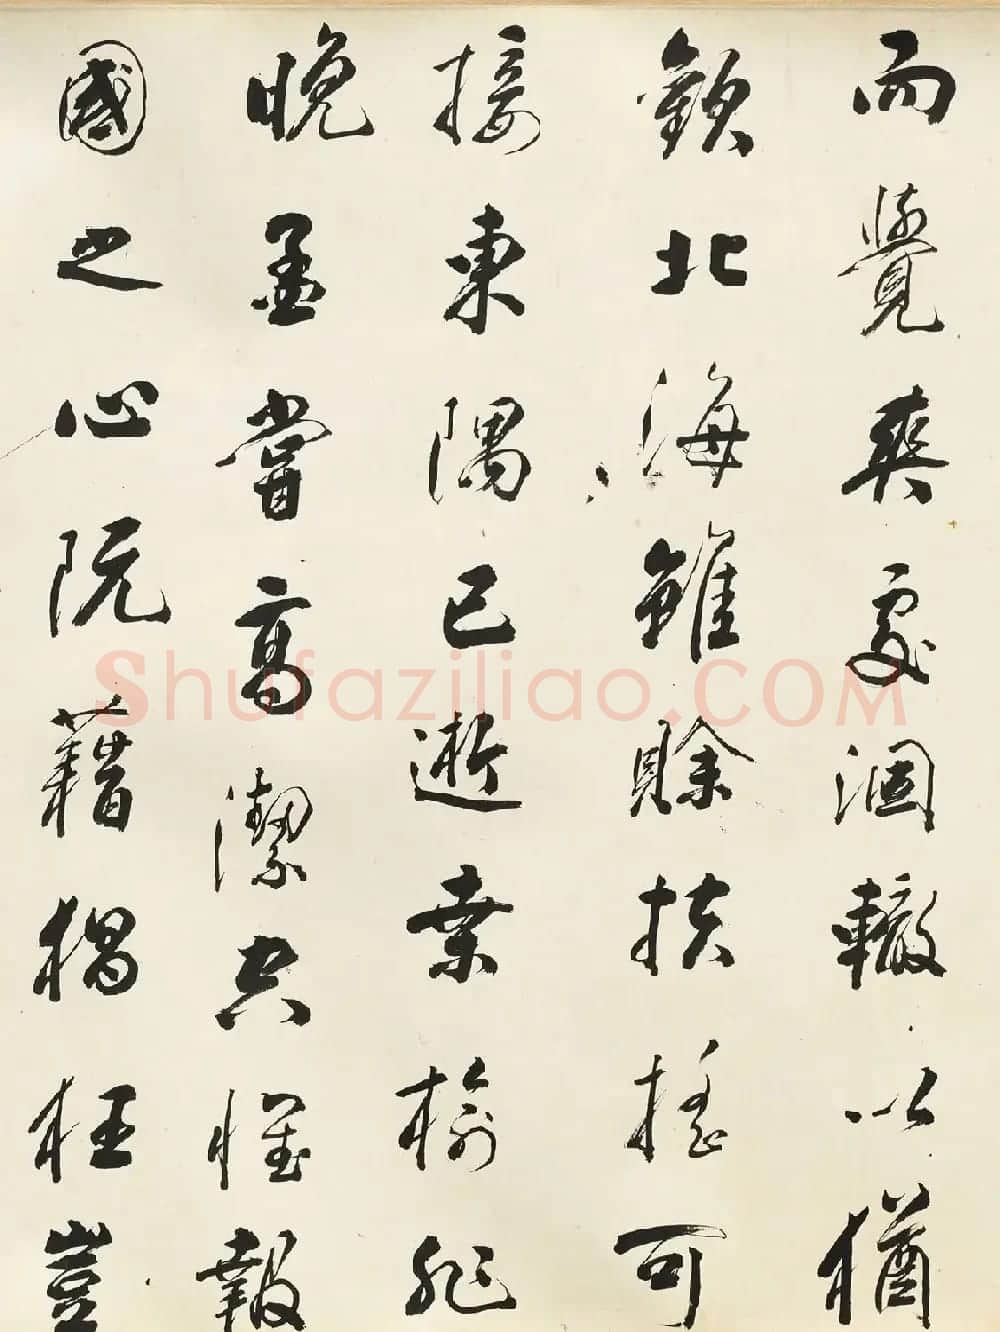 而覺爽處涸轍以猶
歡北海雖賒扶搖可
接東隅已逝桒榆非
晚孟嘗高潔空懷報
國之心阮藉猖狂豈
Shufaziliao.COM